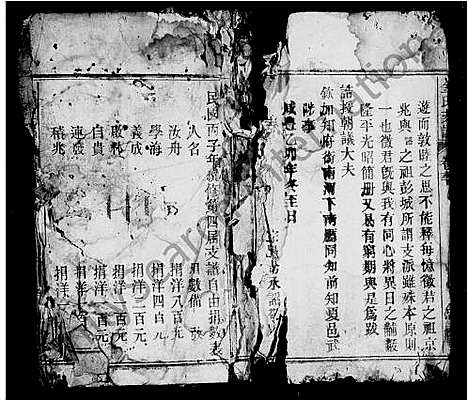 遊而敦睦之思不能釋每憶徵君之祖京
兆與 之祖彭城所謂支派雖殊本原則
一也徵君旣與我有同心將異日之黼黻
隆平光昭簡冊又曷有窮期與是爲跋
誥授朝議大夫
欽加知府銜南河下南廳同知前知夏邑武
陟事
咸豐乙卯年冬至日
民國丙子年 修第四屆支譜自由捐數表
人名 捐數備
汝舟 捐洋八百元
學海 捐洋四百元
義成 捐洋三百元
啟 捐洋二百元
自貴 捐洋一百元
連發 捐洋一百元
積兆 捐洋
Research International